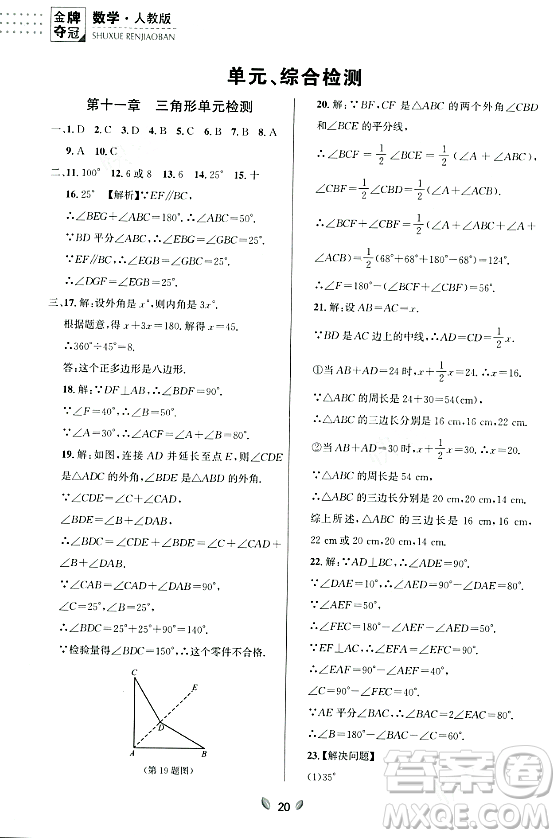 金牌
夺冠
数学·人教版
SHUXUE RENJIAOBAN
单元、综合检测
第十一章 三角形单元检测
一、1. D 2. C 3. D 4. A 5. D 6. B 7. B 8. A
9. A 10. C
二、11. 100° 12. 6 或 8 13. 6 14. 25° 15. 十
16. 25° 【解析】∵EF∥BC,
∴∠BEG+∠ABC=180°. ∴∠ABC=50°.
∵BD 平分∠ABC, ∴∠GBC=25°.
∵EF∥BC,
∴∠DGF=∠GBC=25°.
三、17. 解:设外角是 x°,则内角是 3x°.
根据题意,得 x+3x=180. 解得 x=45.
∴360°÷45°=8.
答:这个正多边形是八边形.
18. 解:∵DF⊥AB, ∴∠AFE=90°.
∴∠A+∠AEF=∠D+∠B=90°.
∵∠A=30°, ∴∠AEF=60°.
∴∠D+∠B=∠AEF+∠B=90°.
19. 解:如图,连接 AD 并延长至点 E,则∠CDE
是△ADC 的外角,∠BDE 是△ADB 的外角.
∴∠CDE=∠CAD+∠C,
∠BDE=∠DAB+∠B.
∴∠CDE+∠BDE=∠CAD+∠C+∠DAB
+∠B.
∵∠CAD+∠DAB=∠CAB=90°,
∠C=25°, ∠B=25°,
∴∠BDC=25°+25°+90°=140°.
∵检验量得∠BDC=150°,∴这个零件不合格.
C
E
D
A
B
(第 19 题图)
20. 解:∵BF,CF 是△ABC 的两个外角∠CBD
和∠BCE 的平分线,
∴∠BCF=1/2∠BCE=1/2(∠A+∠ABC),
∠CBF=1/2∠CBD=1/2(∠A+∠ACB).
∴∠BCF+∠CBF=1/2(∠A+∠ABC+∠A+
∠ACB)=1/2(68°+68°+180°-68°)=124°.
∴∠F=180°-(∠BCF+∠CBF)=56°.
21. 解:设 AB=AC=x.
∵BD 是 AC 边上的中线,∴AD=CD=1/2x.
①当 AB+AD=24 时,x+1/2x=24. ∴x=16.
∴△ABC 的周长=24+30=54(cm).
∴△ABC 的三边长分别是 16 cm,16 cm,22 cm.
②当 AB+AD=30 时,x+1/2x=30. ∴x=20.
∴△ABC 的周长=24+30=54(cm).
∴△ABC 的三边长分别是 20 cm,20 cm,14 cm.
综上所述,△ABC 的三边长为 16 cm,16 cm,
22 cm 或 20 cm,20 cm,14 cm.
22. 解:∵AD⊥BC, ∴∠ADE=90°.
∵∠DAE=10°, ∴∠AED=80°.
∵∠AEF=50°,
∴∠BEF=180°-∠AEF-∠AED=50°.
∴∠BEF=∠AEF.
∴∠BFE=∠AFE=90°.
∴∠C=90°-∠CAD, ∠BAD=90°-∠B,
23. 【解决问题】
(1)35°
20